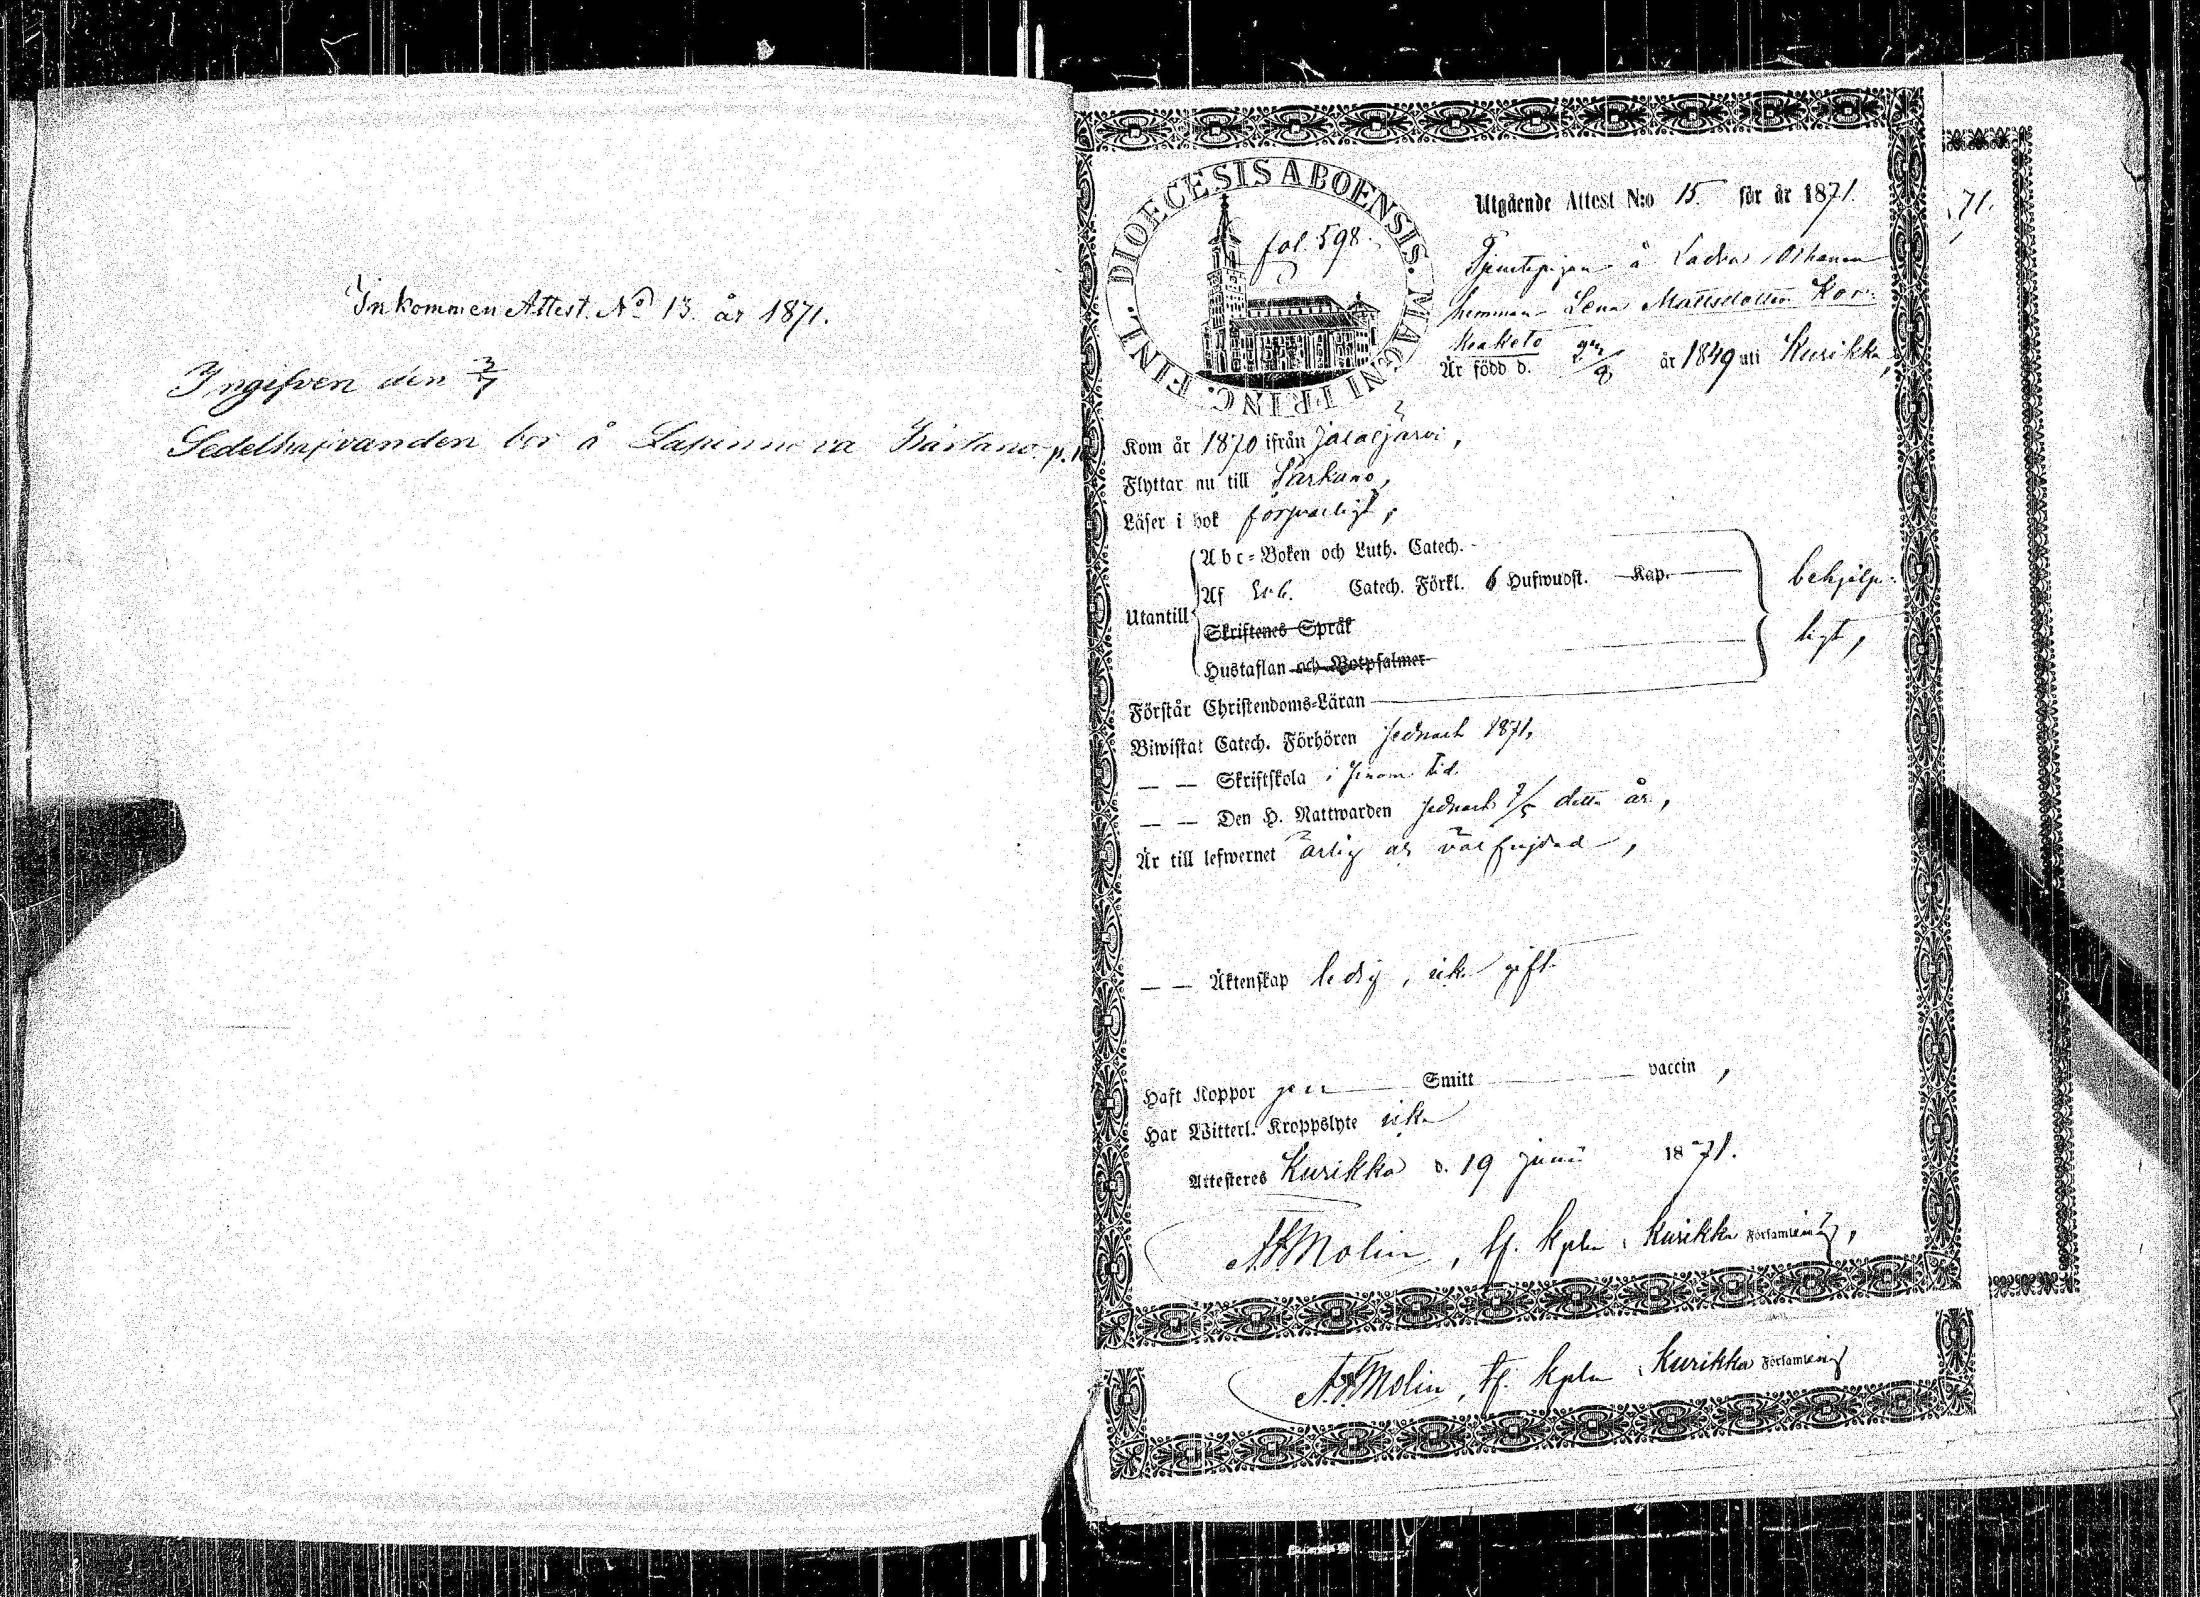 Inkommen Attest. No 13. år 1871.
Ingifven den 3/7
Sedelhafvanden bor å Lapinneva p. 1
DIOECESIS ABOENSIS. MAGNI PRINC. FINL.
fol. 598.
Utgående Attest N:o 15. för år 1871.
71.
Tjenstepigan å Ladva
hemman Lena Mattsdotter Kor-
keakoto
Är född d. 9/8 år 1849 uti Kurikka,
Kom år 1870 ifrån Jalasjärvi,
Flyttar nu till Parkano,
Läser i bok försvarligt,
Utantill
Abc-Boken och Luth. Catech.
Af Catech. Förkl. 6 Hufwudst. Kap.
Skriftenes Språk
Hustaflan och Botpsalmer
behjelp-
ligt,
Förstår Christendoms-Läran
Biwistat Catech. Förhören sednast 1871,
— — Skriftskola i sinom tid.
— — Den H. Nattwarden sednast 7/5 detta år,
Är till lefwernet ärlig och väl frejdad,
— — Äktenskap ledig, icke gift
Haft Koppor Smitt vaccin,
Har Witterl. Kroppslyte icke
Attesteras Kurikka d. 19 Junii 1871.
Molin, tf. kpln i Kurikka Församling,
Molin, tf. kpln i Kurikka Församling